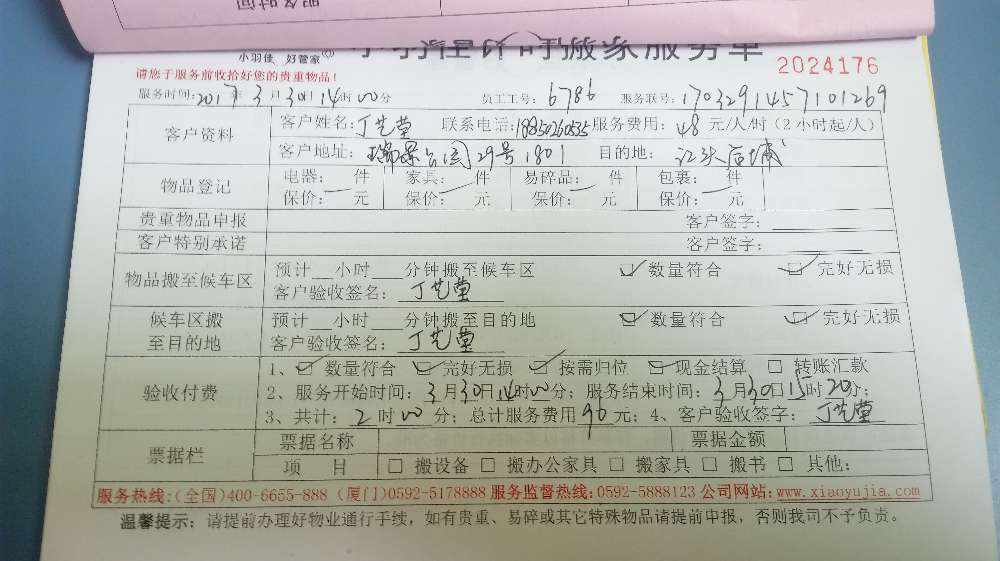 小羽佳 好管家
时搬家服务单
请您于服务前收拾好您的贵重物品！
2024176
服务时间：2017年3月30日14时00分 员工工号：6786 服务联号：1703291457101269
客户资料 客户姓名：丁艺莹 联系电话：18850260535 服务费用：48元/人/时（2小时起/人）
客户地址：瑞景公园29号1801 目的地：江头后埔
物品登记 电器： 件 家具： 件 易碎品： 件 包裹： 件
保价： 元 保价： 元 保价： 元 保价： 元
贵重物品申报 客户签字：
客户特别承诺 客户签字：
物品搬至候车区 预计__小时___分钟搬至候车区 ☑数量符合 ☑完好无损
客户验收签名：丁艺莹
候车区搬至目的地 预计__小时___分钟搬至目的地 ☑数量符合 ☑完好无损
客户验收签名：丁艺莹
验收付费 1、☑数量符合 ☑完好无损 ☑按需归位 ☑现金结算 □转账汇款
2、服务开始时间：3月30日14时00分；服务结束时间：3月30日15时20分；
3、共计：2时00分；总计服务费用96元；4、客户验收签字：丁艺莹
票据栏 票据名称 票据金额
项 目 □搬设备 □搬办公家具 □搬家具 □搬书 □其他：
服务热线：(全国)400-6655-888 (厦门)0592-5178888 服务监督热线：0592-5888123 公司网站：www.xiaoyujia.com
温馨提示：请提前办理好物业通行手续，如有贵重、易碎或其它特殊物品请提前申报，否则我司不予负责。